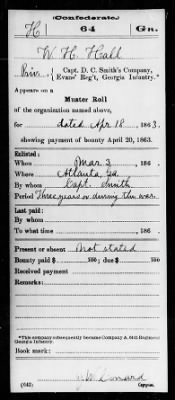 (Confederate.)
H | 64 | Ga.
W. H. Hall
Priv., { Capt. D. C. Smith's Company,
Evans' Reg't, Georgia Infantry.*
Appears on a
Muster Roll
of the organization named above,
for dated Apr 18, 1863.
showing payment of bounty April 20, 1863.
Enlisted:
When Mar 3, 186 .
Where Atlanta Ga
By whom Capt. Smith
Period Three years or during the war
Last paid:
By whom
To what time , 186 .
Present or absent Not stated
Bounty paid $ 100; due $ 100
Received payment
Remarks:
*This company subsequently became Company A, 64th Regiment Georgia Infantry.
Book mark:
(642)
Copyist.